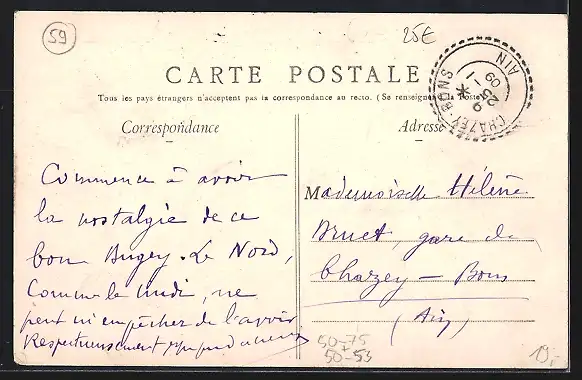 59
25€
CARTE POSTALE
Tous les pays étrangers n'acceptent pas la correspondance au recto. (Se renseigner à la Poste
Correspondance
Adresse
CHAZEY BONS
AIN
Commence à avoir
la nostalgie de ce
bon Bugey. Le Nord,
comme le midi, ne
peut m'empêcher de l'avoir
Respectueusement
Mademoiselle Hélène
Bruet, gare de
Chazey - Bons
(Ain)
50-75
50-53
19,-